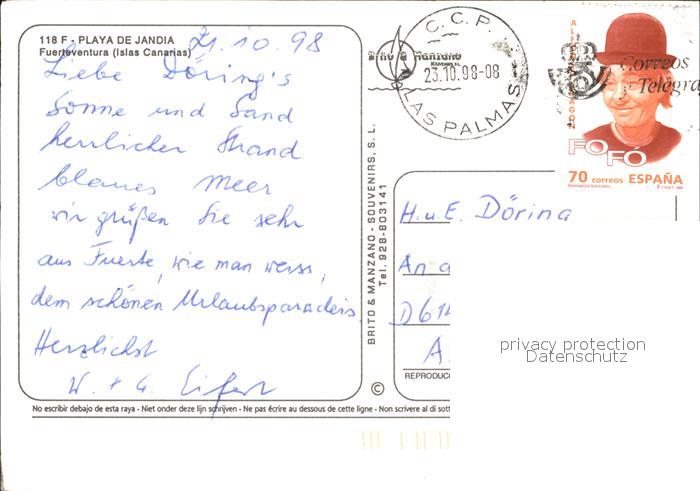 118 F - PLAYA DE JANDIA
Fuerteventura (Islas Canarias)
21.10.98
Liebe Döring's
Sonne und Sand
herrlicher Strand
blaues Meer
wir grüßen Sie sehr
aus Fuerte, wie man weiss,
dem schönen Urlaubsparadeis.
Herzlichst
W. + G. Eifert
No escribir debajo de esta raya - Niet onder deze lijn schrijven - Ne pas écrire au dessous de cette ligne - Non scrivere al di sott
BRITO & MANZANO - SOUVENIRS, S. L.
Tel. 928-803141
©
Manzano
SOUVENIRS S.L.
C.C.P.
23.10.98-08
LAS PALMAS
Correos
Telégra
FOFÓ
70 correos ESPAÑA
H. u E. Döring
An
D61
A.
REPRODUC
privacy protection
Datenschutz